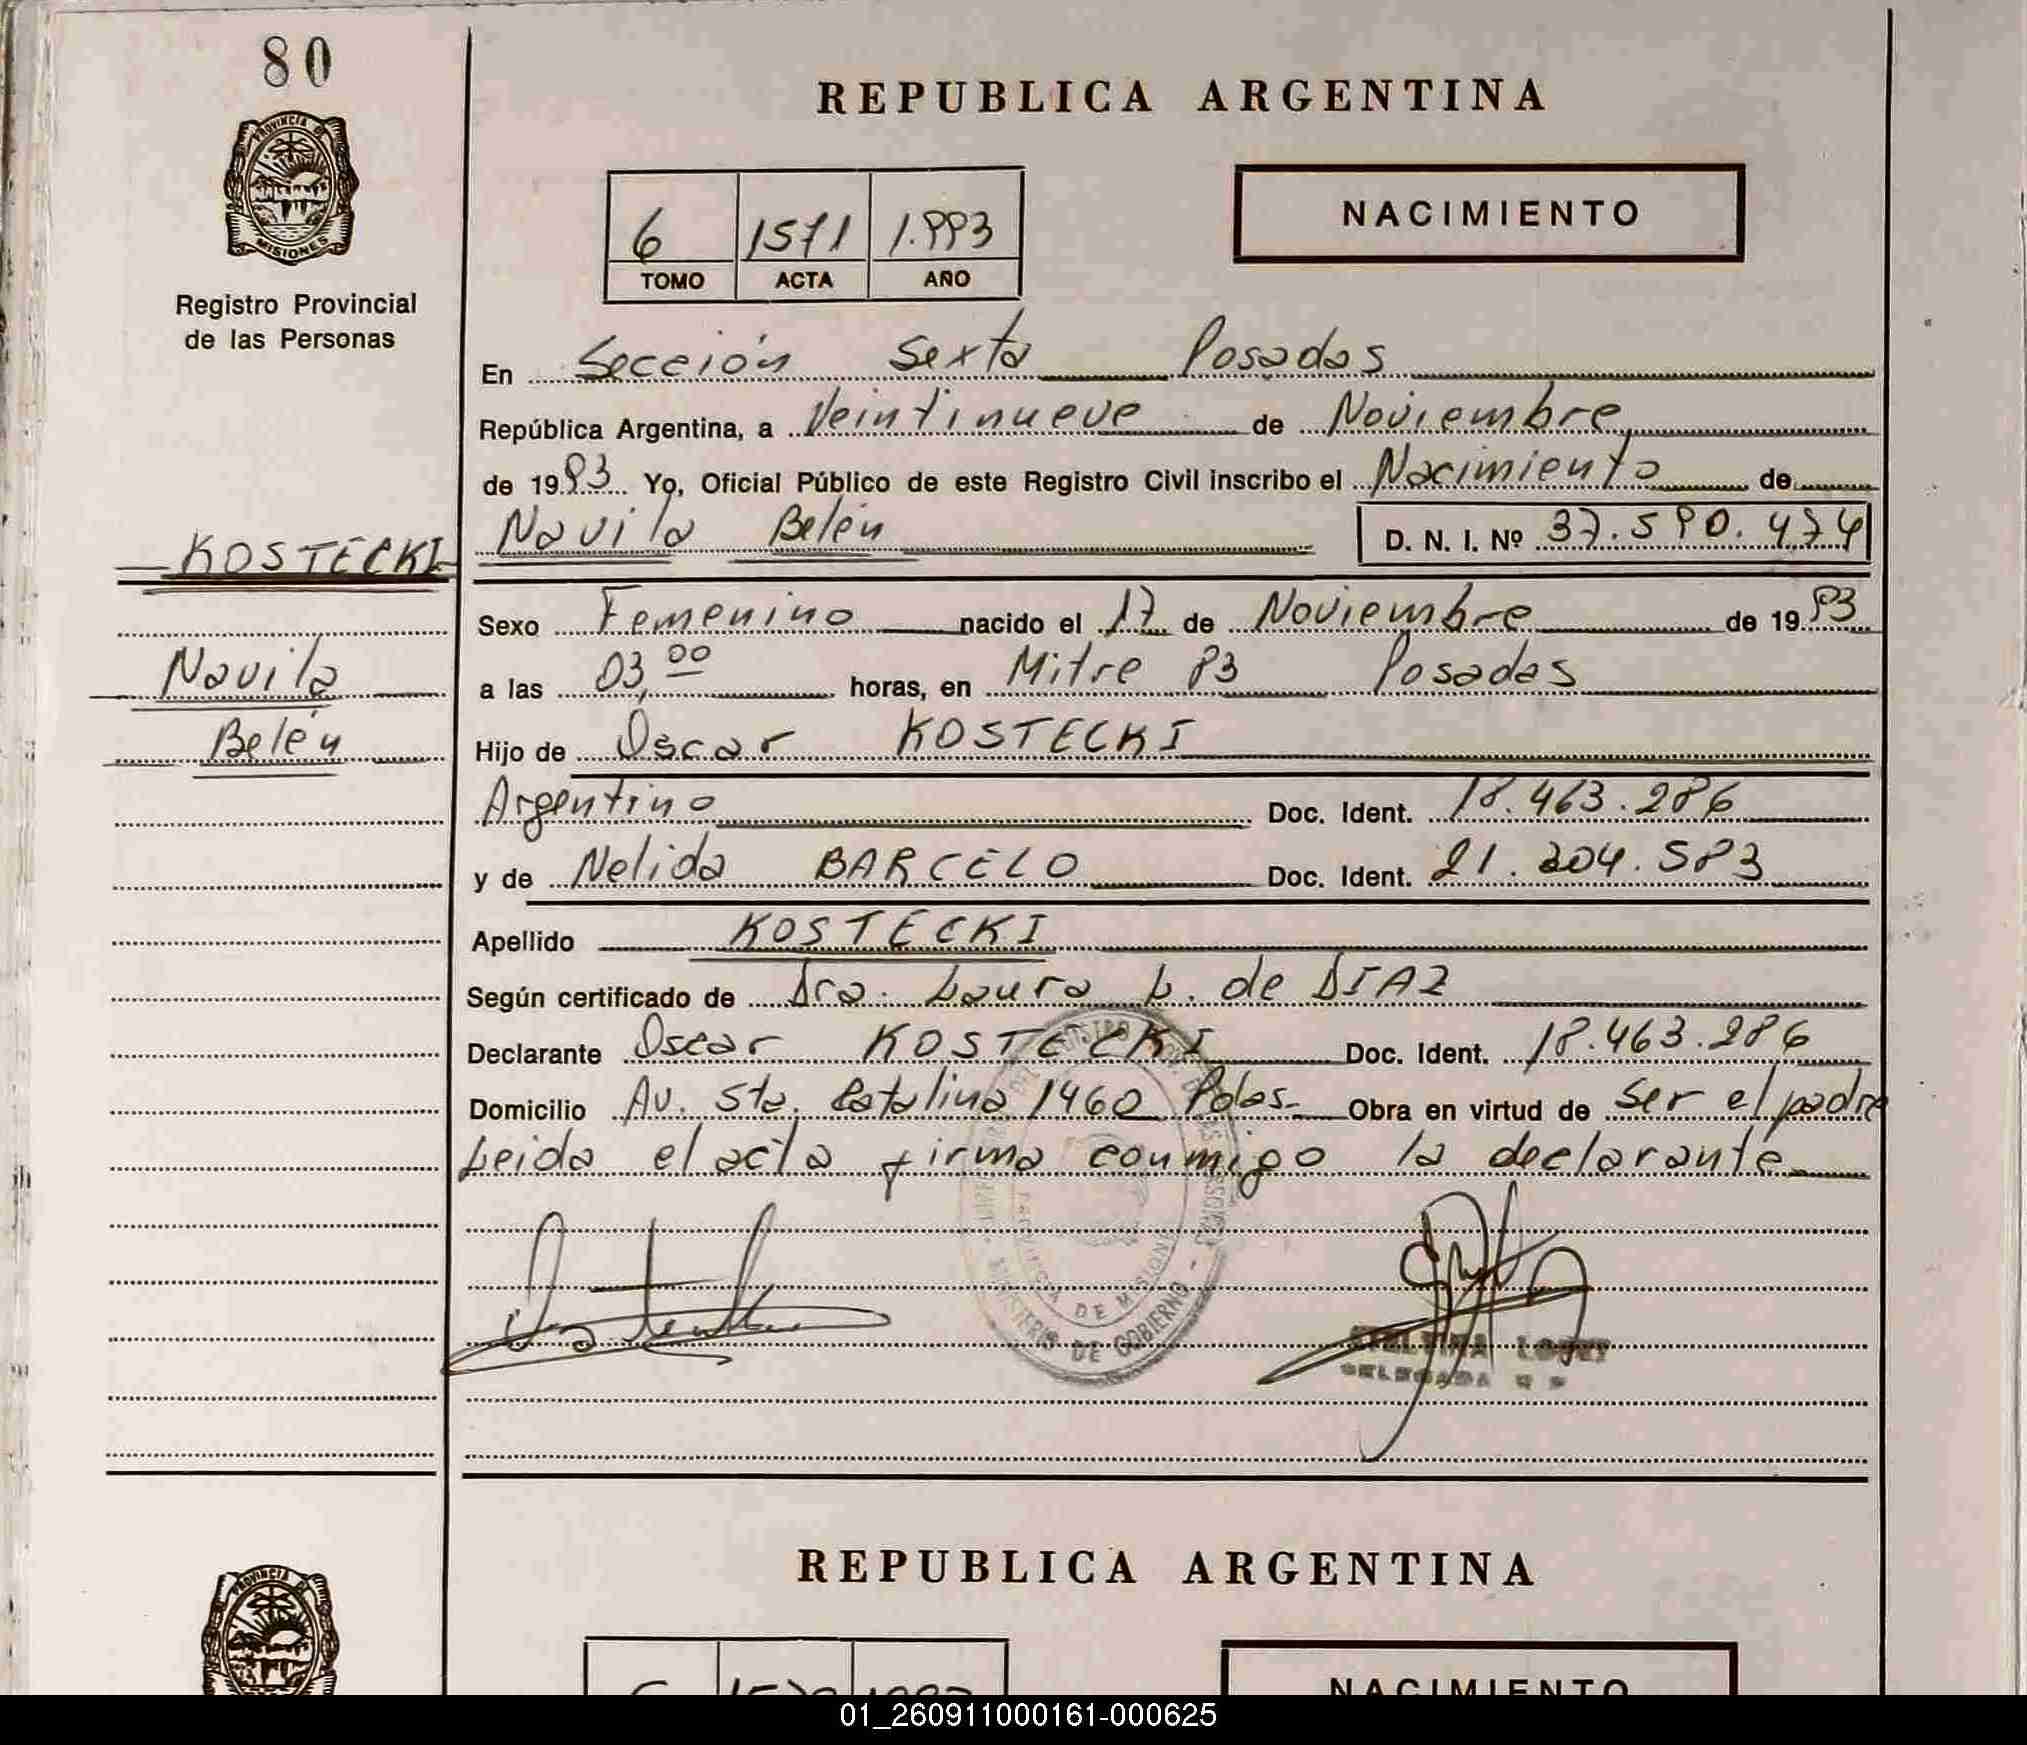 80
REPUBLICA ARGENTINA
PROVINCIA DE
MISIONES
Registro Provincial
de las Personas
6 1571 1.993
TOMO ACTA AÑO
NACIMIENTO
En Sección Sexta Posadas
República Argentina, a Veintinueve de Noviembre
de 1993 Yo, Oficial Público de este Registro Civil inscribo el Nacimiento de
Navila Belén D. N. I. Nº 37.590.474
KOSTECKI
Sexo Femenino nacido el 17 de Noviembre de 1993
Navila
a las 03,00 horas, en Mitre 83 Posadas
Belén
Hijo de Oscar KOSTECKI
Argentino Doc. Ident. 18.463.286
y de Nelida BARCELO Doc. Ident. 21.304.583
Apellido KOSTECKI
Según certificado de Dra. Laura L. de DIAZ
Declarante Oscar KOSTECKI Doc. Ident. 18.463.286
Domicilio Av. Sta. Catalina 1460 Pdas. Obra en virtud de ser el padre
Leida el acta firma conmigo la declarante
MINISTERIO DE GOBIERNO
PROVINCIA DE MISIONES
LOPEZ
DELEGADA R P
REPUBLICA ARGENTINA
PROVINCIA DE
NACIMIENTO
01_260911000161-000625